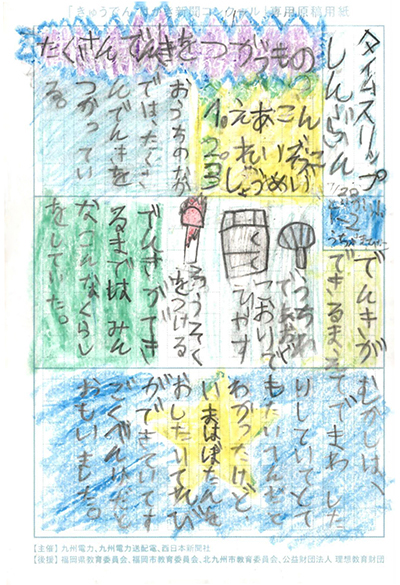 タイムスリップ
しんぶん
たくさんでんきをつかうもの
1. えあこん
2. れいぞうこ
3. しょうめい
おうちのなか
では、たくさ
んでんきを
つかってい
る。
でんきが
できるまえ
うちわ
こおりで
ひやす
ろうそく
をつける
でんきができ
るまでは みん
なこんなくらし
をしていた。
むかしは、
てでまわした
りしていてとて
もたいへんだと
わかったけど、
いまはぼたんを
ができていてす
ごくべんりだと
おもいました。
【主催】九州電力、九州電力送配電、西日本新聞社
【後援】福岡県教育委員会、福岡市教育委員会、北九州市教育委員会、公益財団法人 理想教育財団